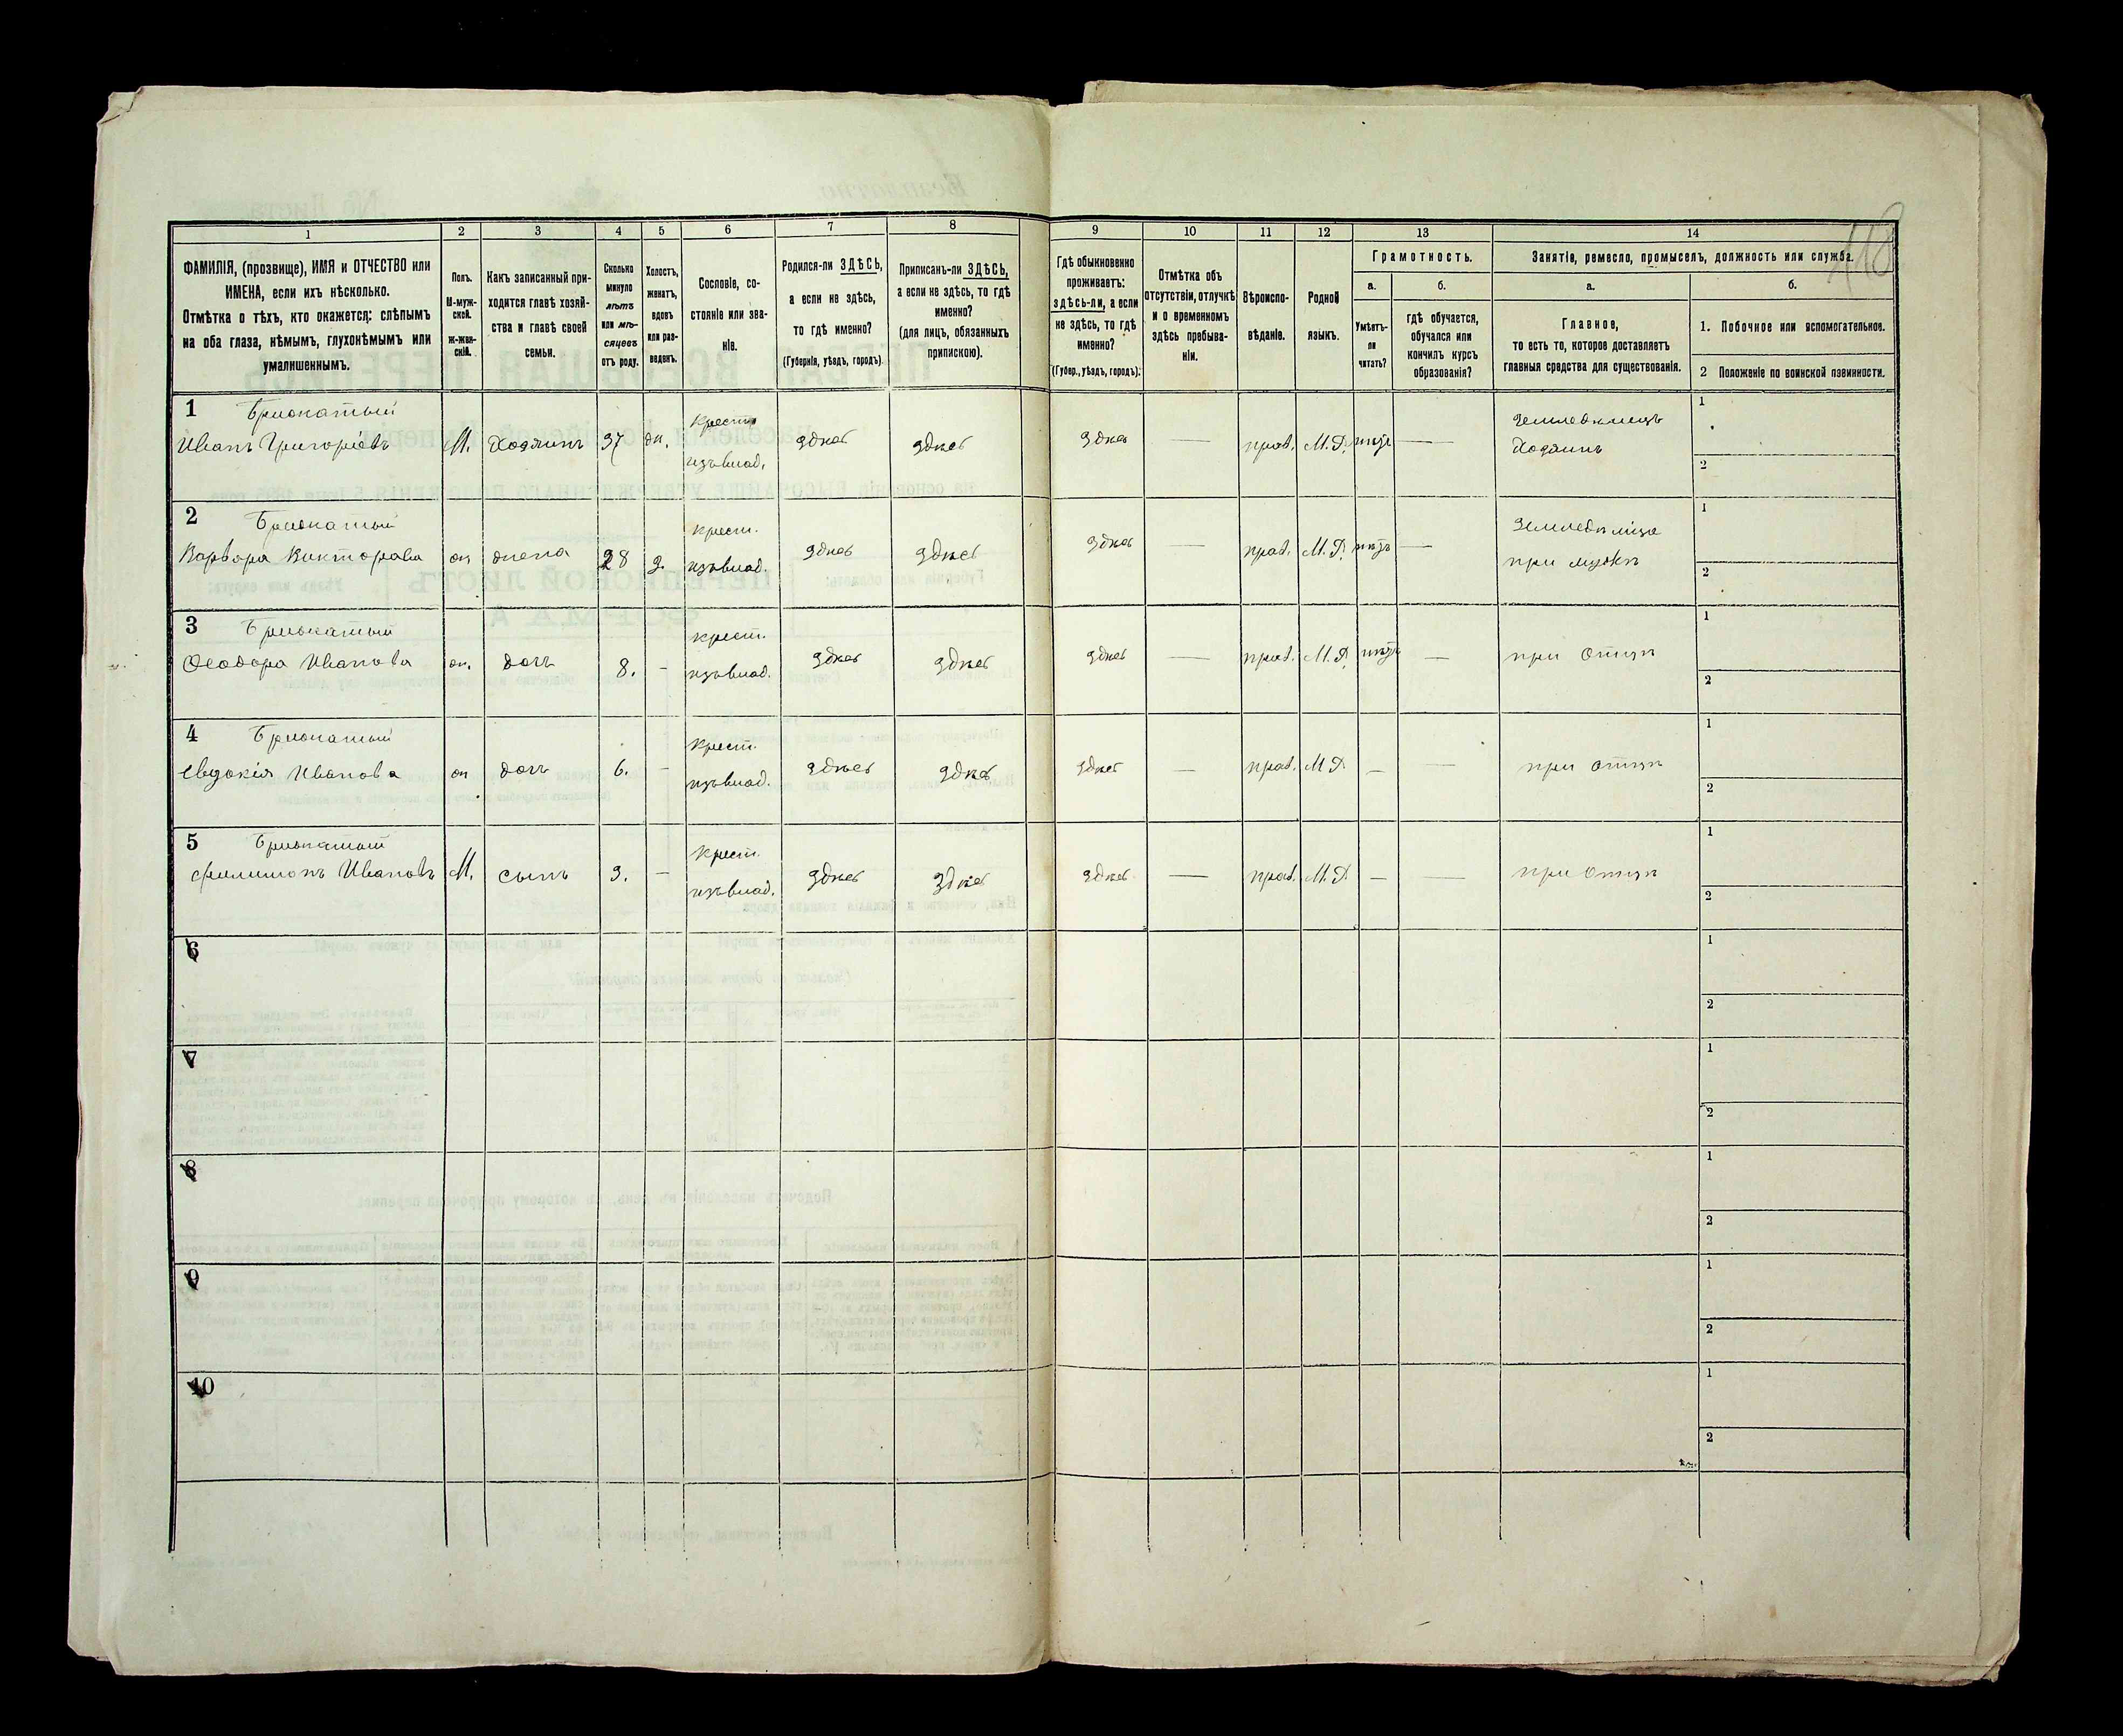 118
1
2
3
4
5
6
7
8
9
10
11
12
13
14
ФАМИЛІЯ, (прозвище), ИМЯ и ОТЧЕСТВО или
ИМЕНА, если ихъ нѣсколько.
Отмѣтка о тѣхъ, кто окажется: слѣпымъ
на оба глаза, нѣмымъ, глухонѣмымъ или
умалишеннымъ.
Полъ.
М-муж-
ской.
Ж-жен-
скій.
Какъ записанный при-
ходится главѣ хозяй-
ства и главѣ своей
семьи.
Сколько
минуло
лѣтъ
или мѣ-
сяцевъ
отъ роду.
Холостъ,
женатъ,
вдовъ
или раз-
веденъ.
Сословіе, со-
стояніе или зва-
ніе.
Родился-ли ЗДѢСЬ,
а если не здѣсь,
то гдѣ именно?
(Губернія, уѣздъ, городъ).
Приписанъ-ли ЗДѢСЬ,
а если не здѣсь, то гдѣ
именно?
(для лицъ, обязанныхъ
припискою).
Гдѣ обыкновенно
проживаетъ:
здѣсь-ли, а если
не здѣсь, то гдѣ
именно?
(Губер., уѣздъ, городъ).
Отмѣтка объ
отсутствіи, отлучкѣ
и о временномъ
здѣсь пребыва-
ніи.
Вѣроиспо-
вѣданіе.
Родной
языкъ.
Грамотность.
а.
Умѣетъ-
ли
читать?
б.
гдѣ обучается,
обучался или
кончилъ курсъ
образованія?
Занятіе, ремесло, промыселъ, должность или служба.
а.
Главное,
то есть то, которое доставляетъ
главныя средства для существованія.
б.
1. Побочное или вспомогательное.
2 Положеніе по воинской повинности.
1
Иванъ Григоріевъ
М.
Хозяинъ
37
ж.
крест.
изъ влад.
здѣсь
здѣсь
здѣсь
—
прав.
М.Р.
—
Хозяинъ
1
2
2
Варвара Викторова
ж
жена
28
з.
крест.
изъ влад.
здѣсь
здѣсь
здѣсь
—
прав.
М.Р.
—
при мужѣ
1
2
3
Ѳеодора Иванова
ж.
дочь
8.
-
крест.
изъ влад.
здѣсь
здѣсь
здѣсь
—
прав.
М.Р.
—
при отцѣ
1
2
4
Евдокія Иванова
ж
дочь
6.
-
крест.
изъ влад.
здѣсь
здѣсь
здѣсь
—
прав.
М.Р.
—
—
при отцѣ
1
2
5
Филимонъ Ивановъ
М.
сынъ
3.
—
крест.
изъ влад.
здѣсь
здѣсь
здѣсь
—
прав.
М.Р.
—
—
при отцѣ
1
2
6
1
2
7
1
2
8
1
2
9
1
2
10
1
2